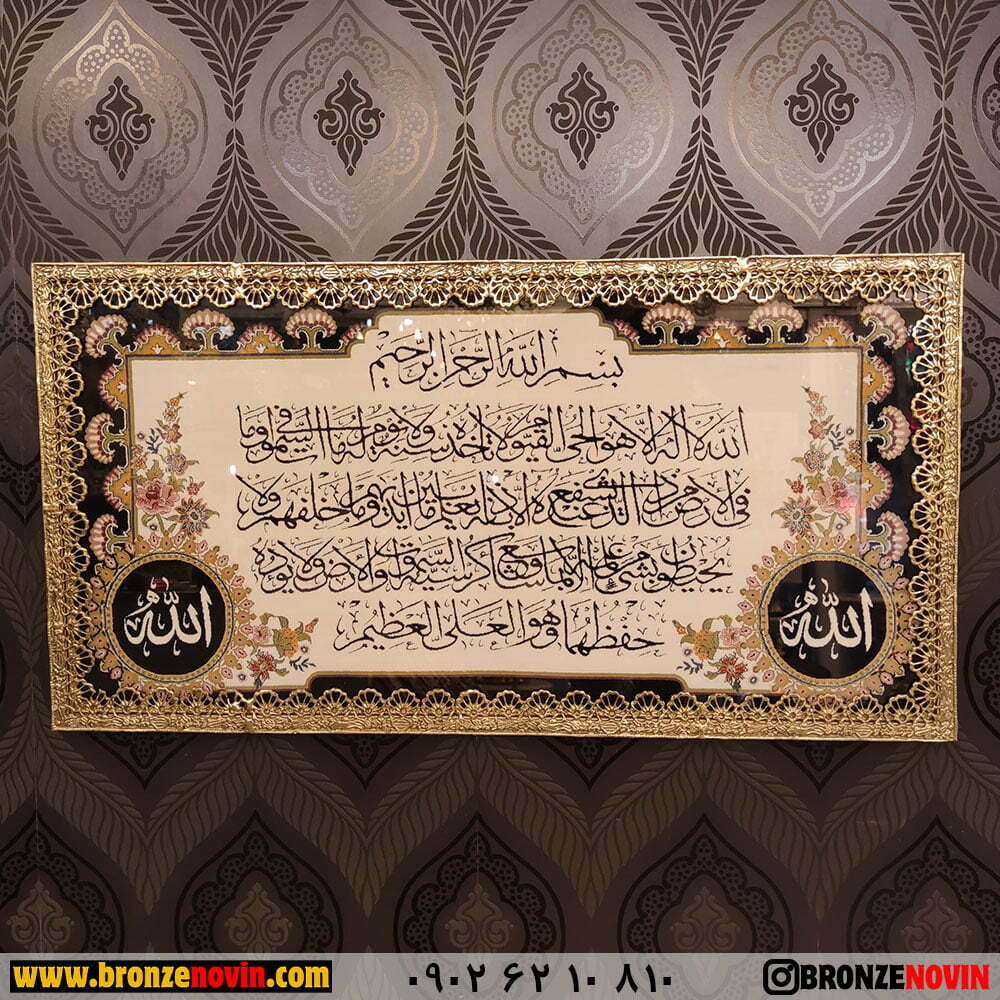 بسم الله الرحمن الرحیم
الله لا اله الا هو الحی القیوم لا تاخذه سنة ولا نوم له ما فی السموات وما
فی الارض من ذا الذی یشفع عنده الا باذنه یعلم ما بین ایدیهم وما خلفهم ولا
یحیطون بشیء من علمه الا بما شاء وسع کرسیه السموات والارض ولا یؤده
حفظهما وهو العلی العظیم
الله
الله
www.bronzenovin.com
۰۹۰۲ ۶۲ ۱۰ ۸۱۰
BRONZENOVIN